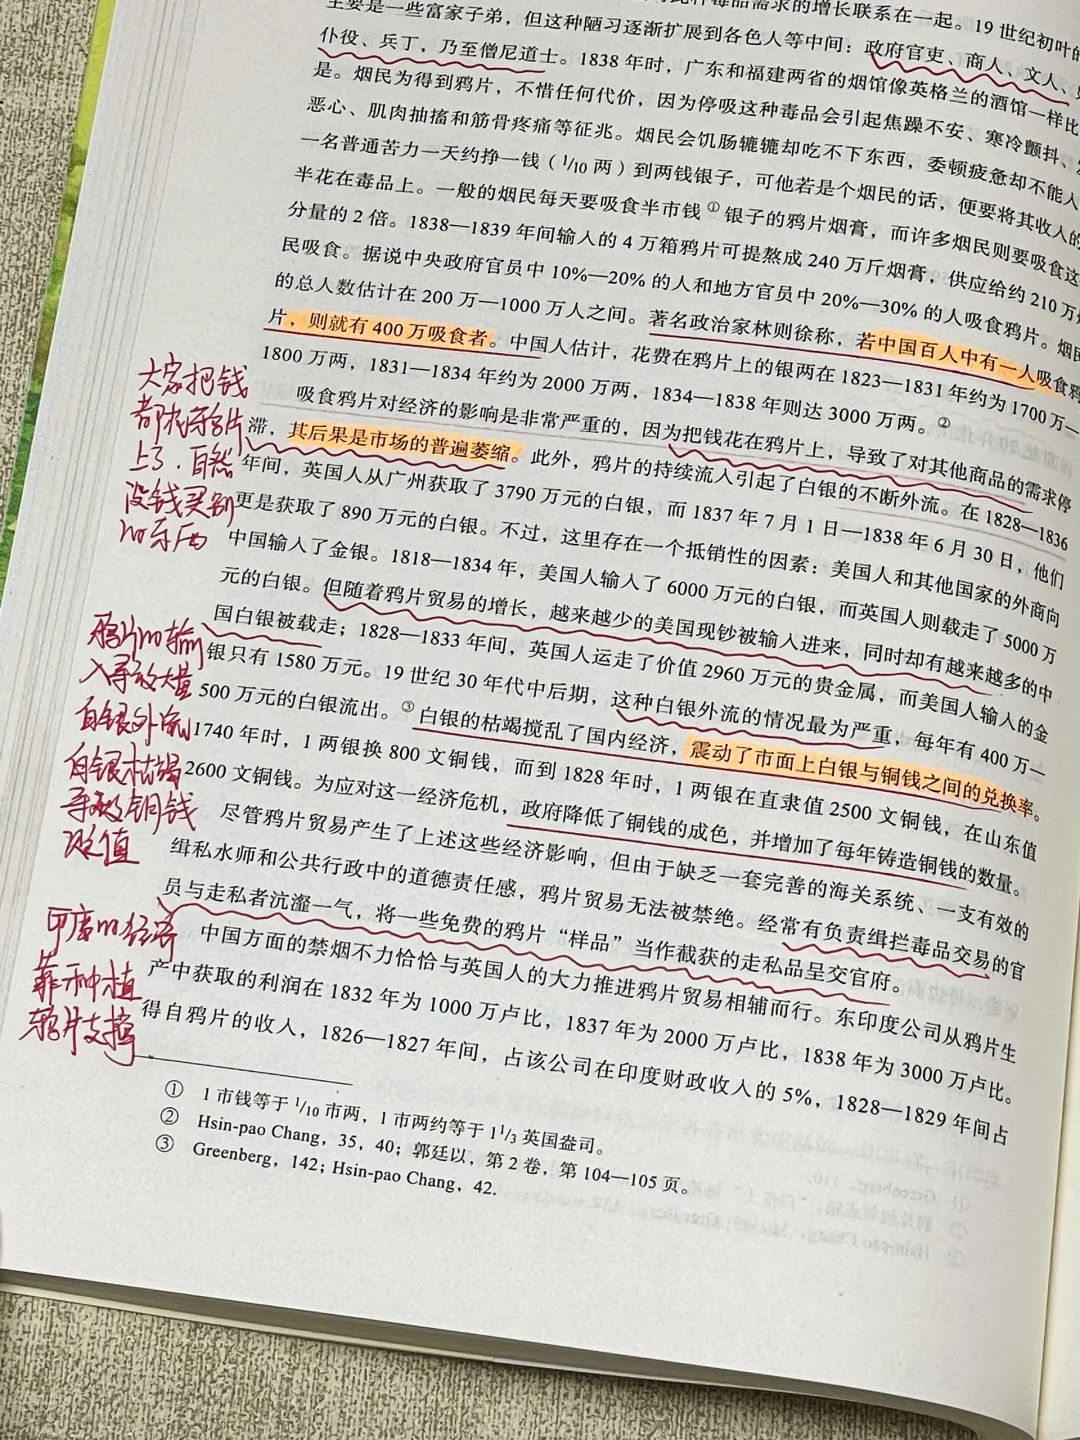 毒品需求的增长联系在一起。19世纪初叶的
主要是一些富家子弟，但这种陋习逐渐扩展到各色人等中间：政府官吏、商人、文人、
仆役、兵丁，乃至僧尼道士。1838年时，广东和福建两省的烟馆像英格兰的酒馆一样比
是。烟民为得到鸦片，不惜任何代价，因为停吸这种毒品会引起焦躁不安、寒冷颤抖、
恶心、肌肉抽搐和筋骨疼痛等征兆。烟民会饥肠辘辘却吃不下东西，委顿疲惫却不能入
一名普通苦力一天约挣一钱（1/10两）到两钱银子，可他若是个烟民的话，便要将其收入的
半花在毒品上。一般的烟民每天要吸食半市钱①银子的鸦片烟膏，而许多烟民则要吸食这
分量的2倍。1838—1839年间输入的4万箱鸦片可提熬成240万斤烟膏，供应给约210万
民吸食。据说中央政府官员中10%—20%的人和地方官员中20%—30%的人吸食鸦片。烟民
的总人数估计在200万—1000万人之间。著名政治家林则徐称，若中国百人中有一人吸食鸦
片，则就有400万吸食者。中国人估计，花费在鸦片上的银两在1823—1831年约为1700万—
1800万两，1831—1834年约为2000万两，1834—1838年则达3000万两。②
吸食鸦片对经济的影响是非常严重的，因为把钱花在鸦片上，导致了对其他商品的需求停
滞，其后果是市场的普遍萎缩。此外，鸦片的持续流入引起了白银的不断外流。在1828—1836
年间，英国人从广州获取了3790万元的白银，而1837年7月1日—1838年6月30日，他们
更是获取了890万元的白银。不过，这里存在一个抵销性的因素：美国人和其他国家的外商向
中国输入了金银。1818—1834年，美国人输入了6000万元的白银，而英国人则载走了5000万
元的白银。但随着鸦片贸易的增长，越来越少的美国现钞被输入进来，同时却有越来越多的中
国白银被载走；1828—1833年间，英国人运走了价值2960万元的贵金属，而美国人输入的金
银只有1580万元。19世纪30年代中后期，这种白银外流的情况最为严重，每年有400万—
500万元的白银流出。③白银的枯竭搅乱了国内经济，震动了市面上白银与铜钱之间的兑换率。
1740年时，1两银换800文铜钱，而到1828年时，1两银在直隶值2500文铜钱，在山东值
2600文铜钱。为应对这一经济危机，政府降低了铜钱的成色，并增加了每年铸造铜钱的数量。
尽管鸦片贸易产生了上述这些经济影响，但由于缺乏一套完善的海关系统、一支有效的
缉私水师和公共行政中的道德责任感，鸦片贸易无法被禁绝。经常有负责缉拦毒品交易的官
员与走私者沆瀣一气，将一些免费的鸦片“样品”当作截获的走私品呈交官府。
中国方面的禁烟不力恰恰与英国人的大力推进鸦片贸易相辅而行。东印度公司从鸦片生
产中获取的利润在1832年为1000万卢比，1837年为2000万卢比，1838年为3000万卢比。
得自鸦片的收入，1826—1827年间，占该公司在印度财政收入的5%，1828—1829年间占
① 1市钱等于1/10市两，1市两约等于1 1/3英国盎司。
② Hsin-pao Chang，35，40；郭廷以，第2卷，第104—105页。
③ Greenberg，142；Hsin-pao Chang，42.
大家把钱
都花在鸦片
上了，自然
没钱买别
的东西
鸦片的输
入导致大量
白银外流
白银枯竭
导致铜钱
贬值
印度的经济
靠种植
鸦片支撑